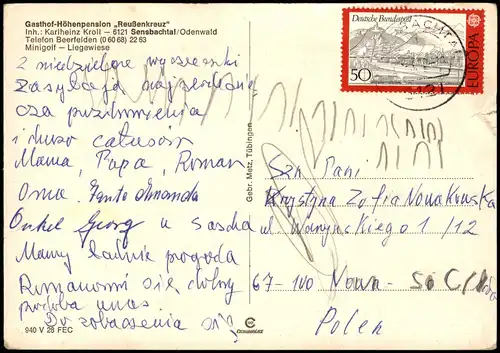 Gasthof-Höhenpension „Reußenkreuz"
Inh.: Karlheinz Kroll — 6121 Sensbachtal/Odenwald
Telefon Beerfelden (0 60 68) 22 63
Minigolf — Liegewiese
Z niedzielnej wycieczki
zasyłają najserdeczniejsze
pozdrowienia
i dużo całusów
Mama, Papa, Roman
Oma. Tante Amanda
Onkel Georg u Sascha
Mamy ładnie pogoda
Romanowi się dobry
podoba u nas.
Do zobaczenia
940 V 26 FEC
Gebr. Metz, Tübingen
Deutsche Bundespost
50
EUROPA
CEPT
Szn. Pani
Krystyna Zofia Nowakowska
ul. Waryńskiego 1/12
67-100 Nowa-Sól
Polen